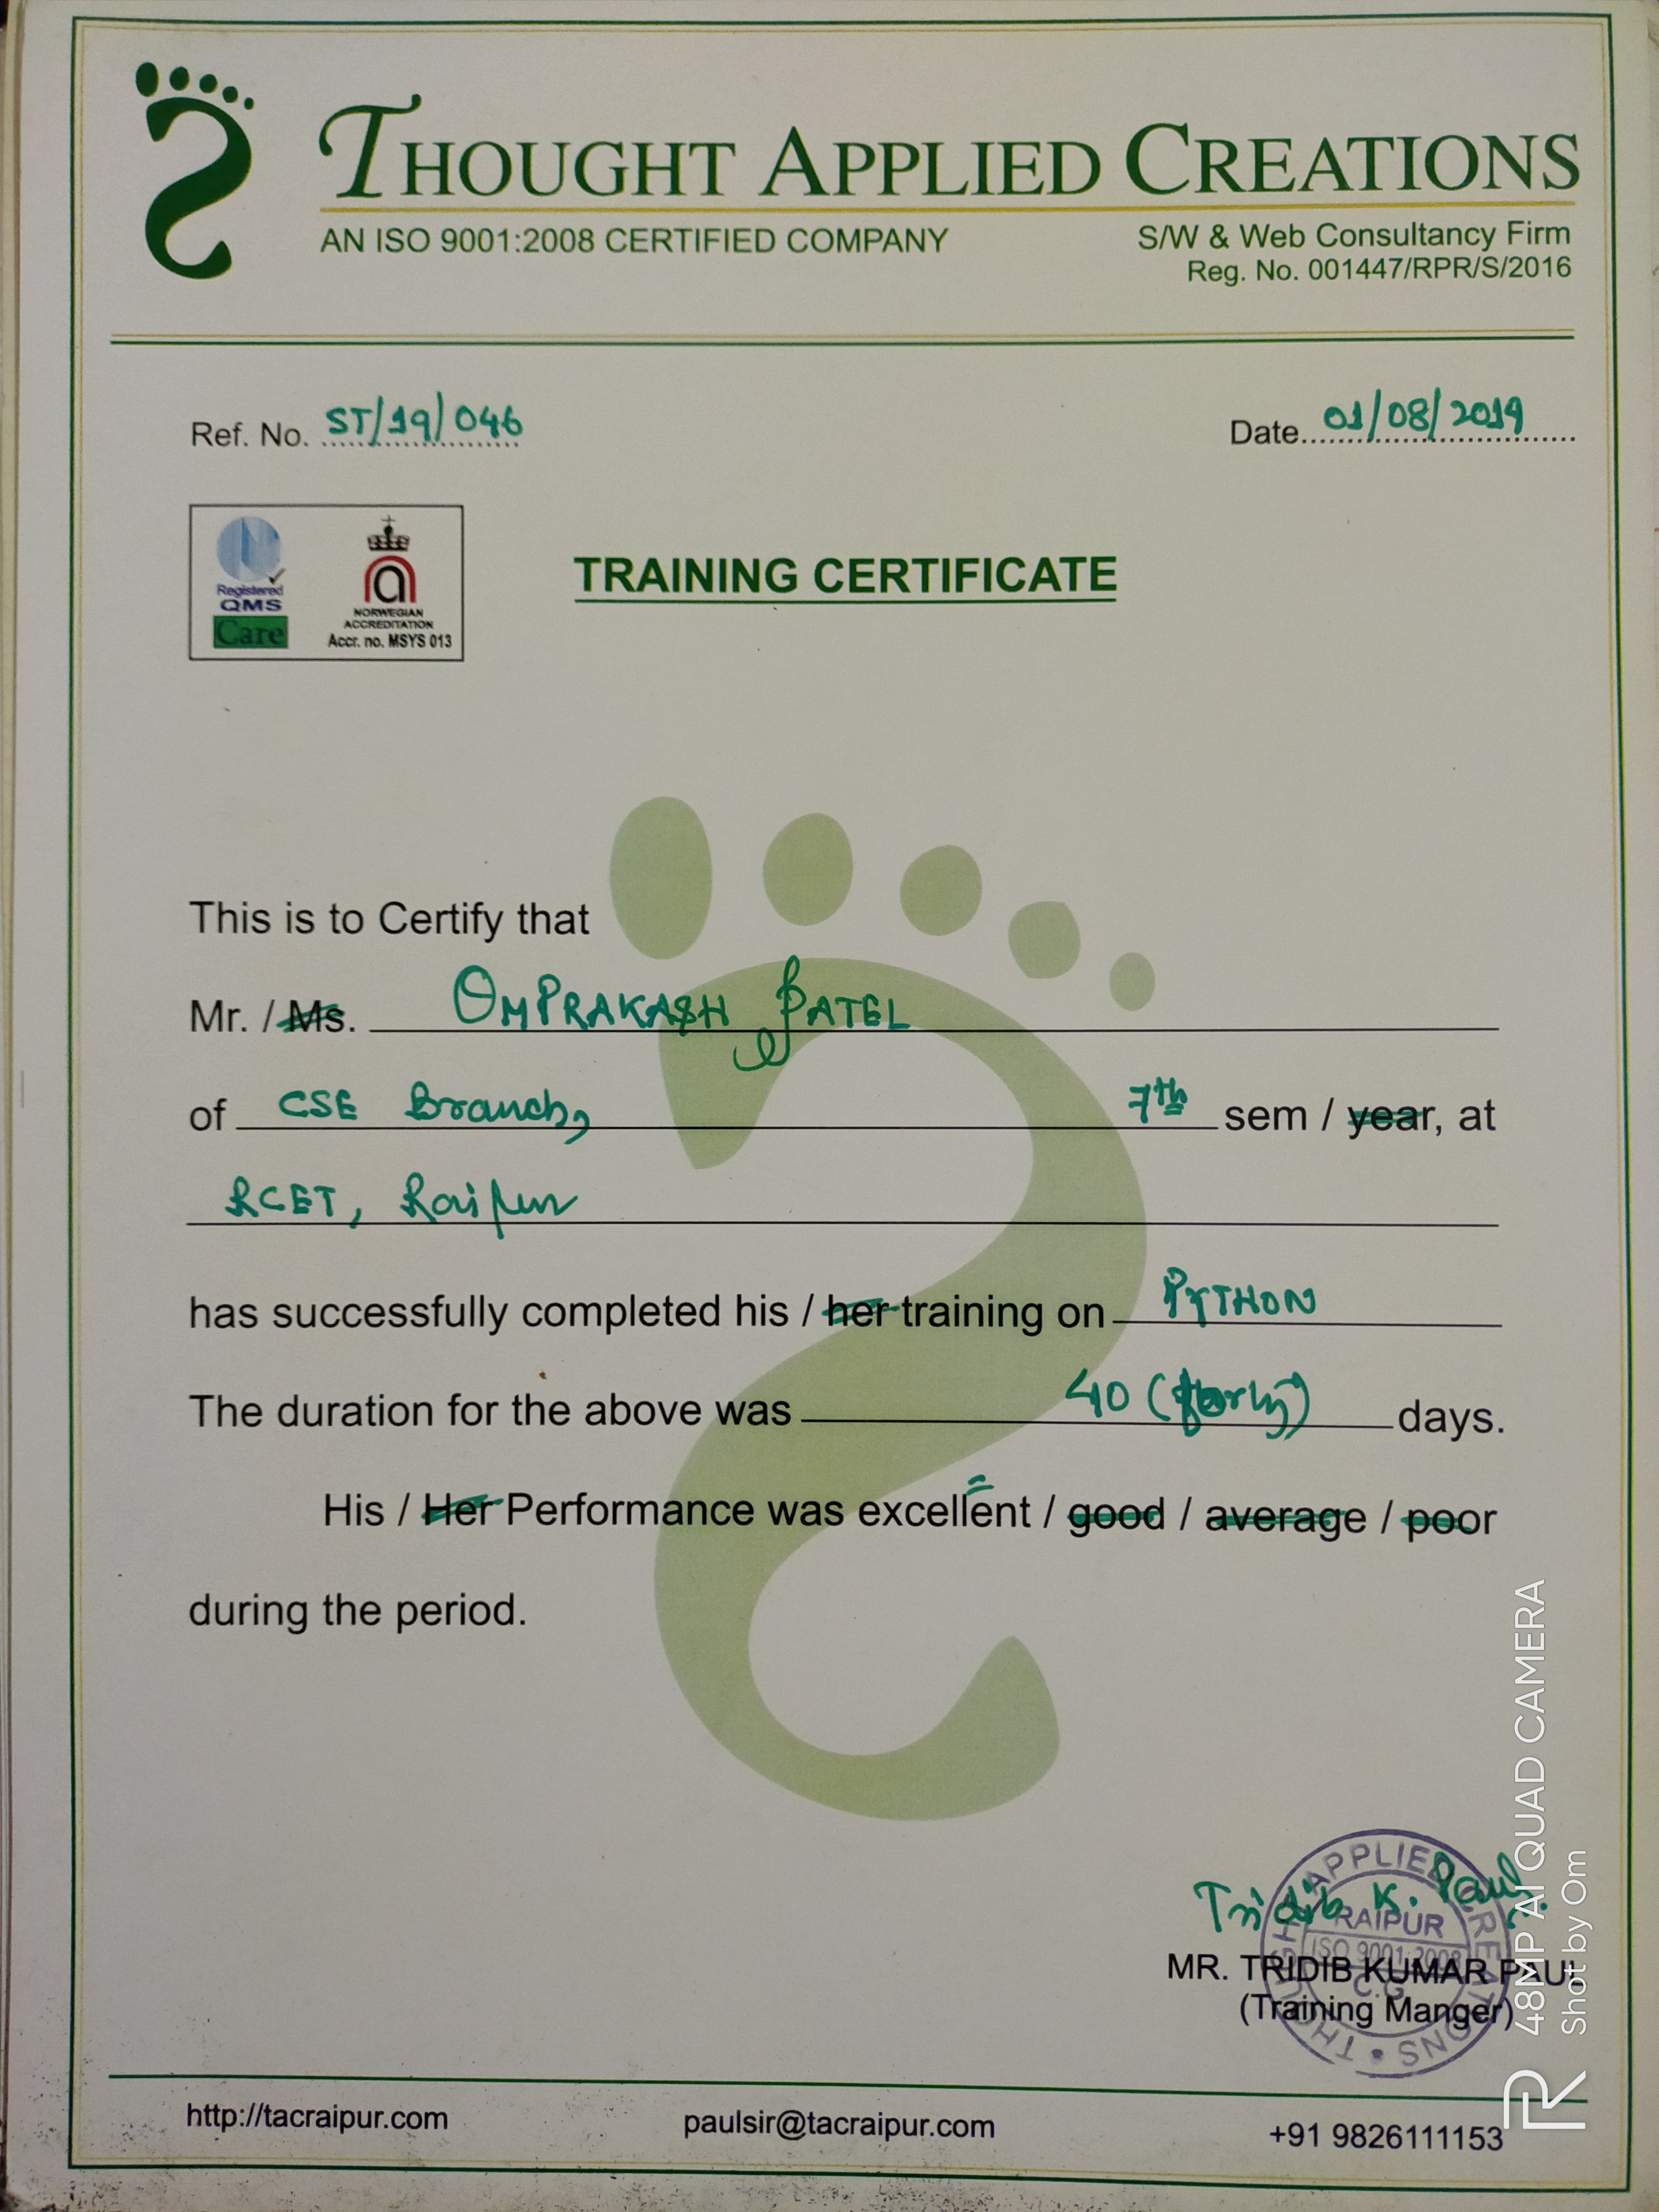 THOUGHT APPLIED CREATIONS
AN ISO 9001:2008 CERTIFIED COMPANY
S/W & Web Consultancy Firm
Reg. No. 001447/RPR/S/2016
Ref. No. ST/19/046
Date....01/08/2019
Registered
QMS
Care
NORWEGIAN
ACCREDITATION
Accr. no. MSYS 013
TRAINING CERTIFICATE
This is to Certify that
Mr. / Ms. OMPRAKASH PATEL
of CSE Branch, 7th sem / year, at
RCET, Raipur
has successfully completed his / her training on PYTHON
The duration for the above was 40 (forty) days.
His / Her Performance was excellent / good / average / poor
during the period.
Tridib K. Paul
THOUGHT APPLIED CREATIONS
RAIPUR
ISO 9001:2008
C.G
MR. TRIDIB KUMAR PAUL
(Training Manger)
http://tacraipur.com
paulsir@tacraipur.com
+91 9826111153
48MP AI QUAD CAMERA
Shot by Om